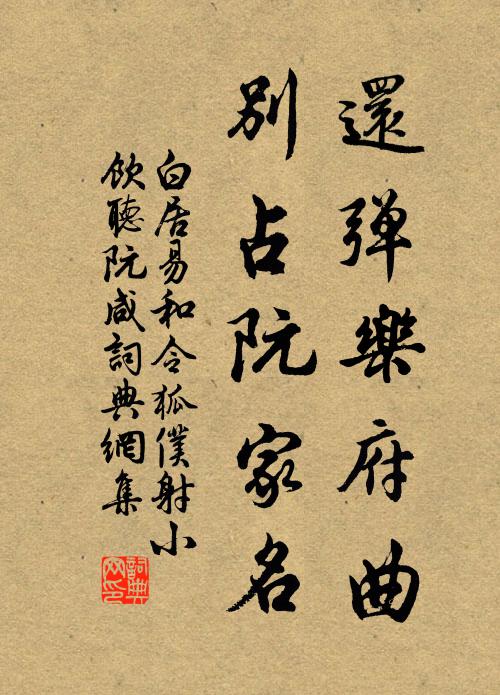 還弹樂府曲
別占阮家名
白居易和令狐僕射小
飲聽阮咸詞典網集
詞典
网印